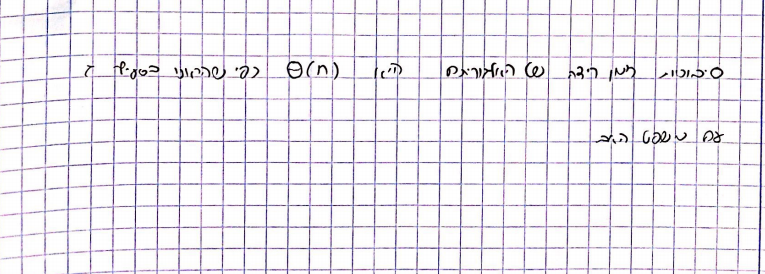 סיבוכיות זמן ריצה של האלגוריתם היא Θ(n) כפי שהראנו בסעיף ג
עם משפט האב